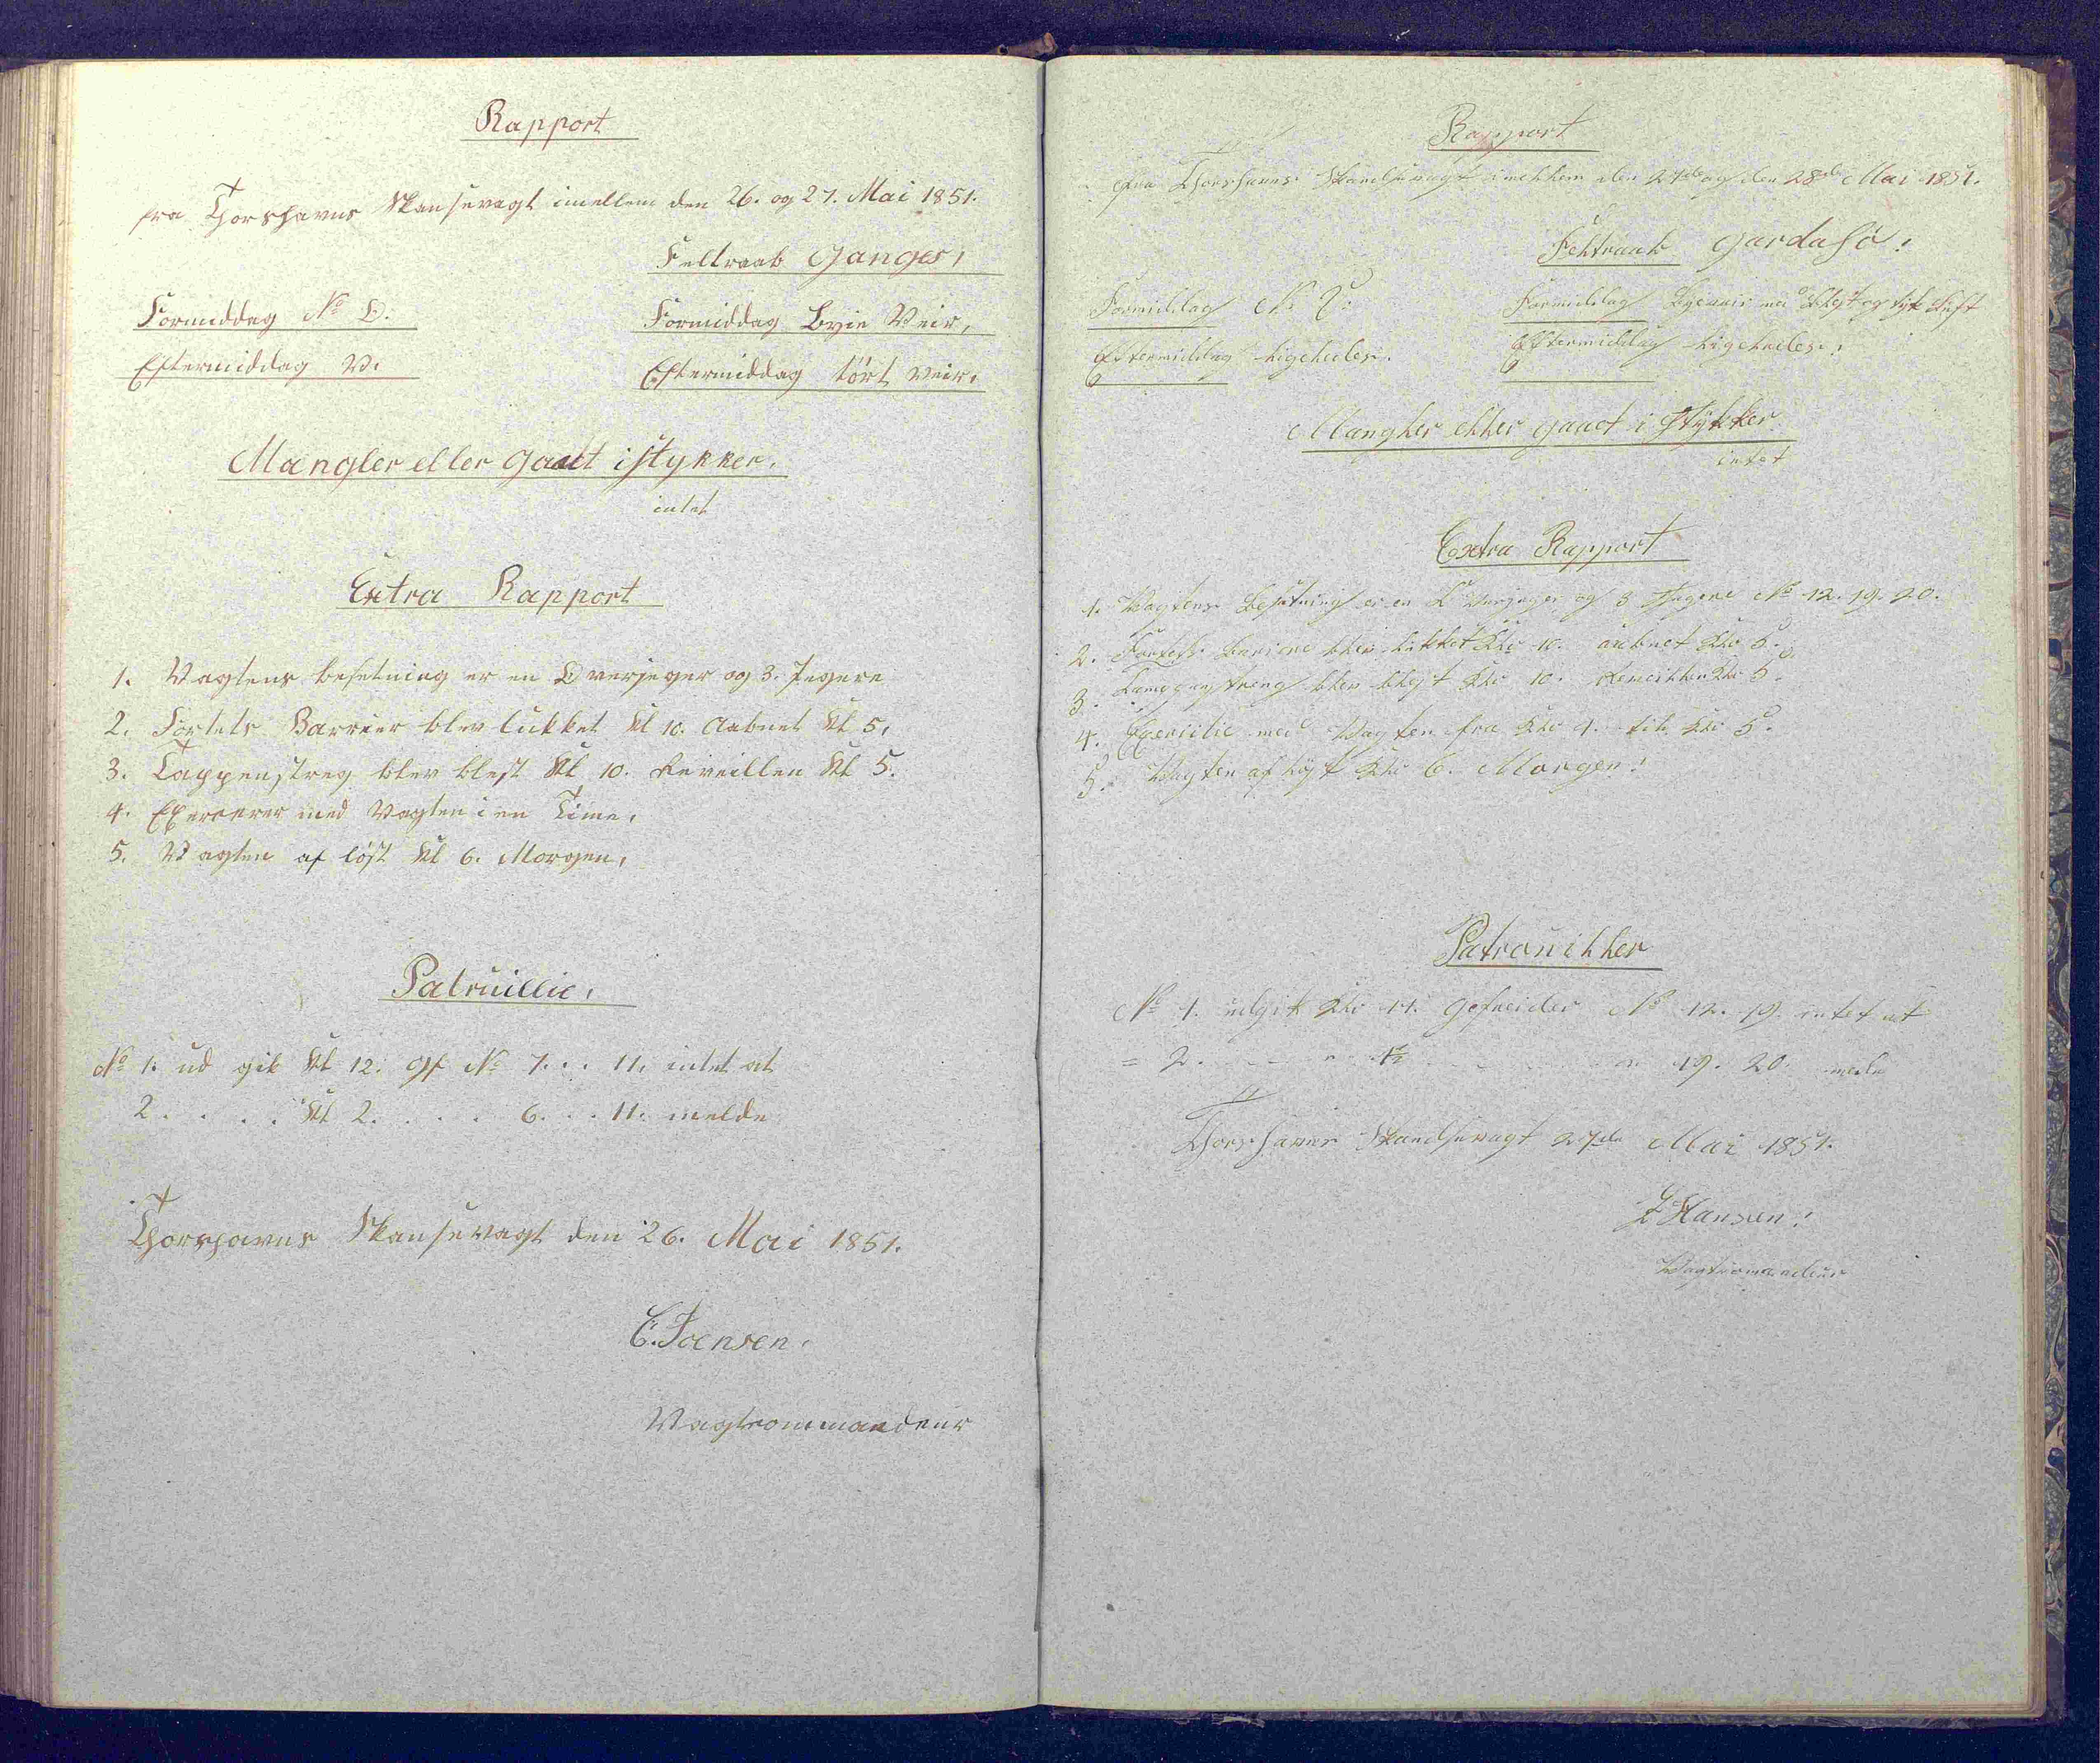 Rapport
fra Thorshavns Skansevagt imellem den 26. og 27. Mai 1851.
Feltraab Ganges,
Formiddag No O.
Formiddag Byie Veir,
Eftermiddag V.
Eftermiddag tört Veir,
Mangler eller gaaet istykker.
intet
Extra Rapport
1. Vagtens besetning er en Overjeger og 3. Jegere
2. Fortets Barrier blev lukket Kl 10. Aabnet Kl 5,
3. Tappenstreg blev blest Kl 10. Reveillen Kl 5.
4. Exercerer med Vagten i en Time,
5. Vagten af löst Kl 6. Morgen,
Patruillie,
No 1. ud gik Kl 12. Gf No 7. . . 11. intet at
2 . . . . Kl 2. . . . 6. . . 11. melde
Thorshavns Skansevagt den 26. Mai 1851.
C. Joensen.
Vagtcommandeur
Rapport
fra Thorshavns Skandsevagt imellem den 27de og den 28de Mai 1851.
Feltraab Gardasö!
Formiddag
Formiddag Byeveir med Blest og tyk Luft
Eftermiddag ligeledes.
Eftermiddag ligeledes.
Mangler eller gaaet i Stykker
intet
Extra Rapport
1. Vagtens Besetning er en Overjeger og 3 Jegere No 12. 19. 20.
2. Fortets Bariere blev lukket Klo 10. aabnet Klo 5.
3. blev blest Klo 10. Reveillen Klo 5.
4. Exersitie med Vagten fra Klo 4. til Klo 5.
5. Vagten af löst Klo 6. Morgen!
Patrouiller
No 1. udgik Klo 11. Gefreider No 12. 19. intet at
= 2. - - - - - - 19. 20. melde
Thorshavns Skandsevagt 27de Mai 1851.
Hansen!
Vagtcomandeur